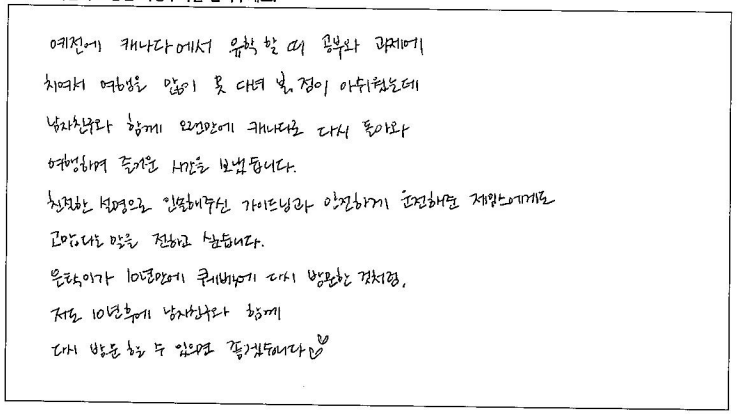 예전에 캐나다에서 유학 할 때 공부와 과제에
치여서 여행을 많이 못 다녀 본 점이 아쉬웠는데
남자친구와 함께 오랜만에 캐나다로 다시 돌아와
여행하며 즐거운 시간을 보냈습니다.
친절한 설명으로 인솔해주신 가이드님과 안전하게 운전해준 제임스에게도
고맙다는 말을 전하고 싶습니다.
은탁이가 10년만에 퀘벡에 다시 방문한 것처럼,
저도 10년후에 남자친구와 함께
다시 방문 할 수 있으면 좋겠습니다